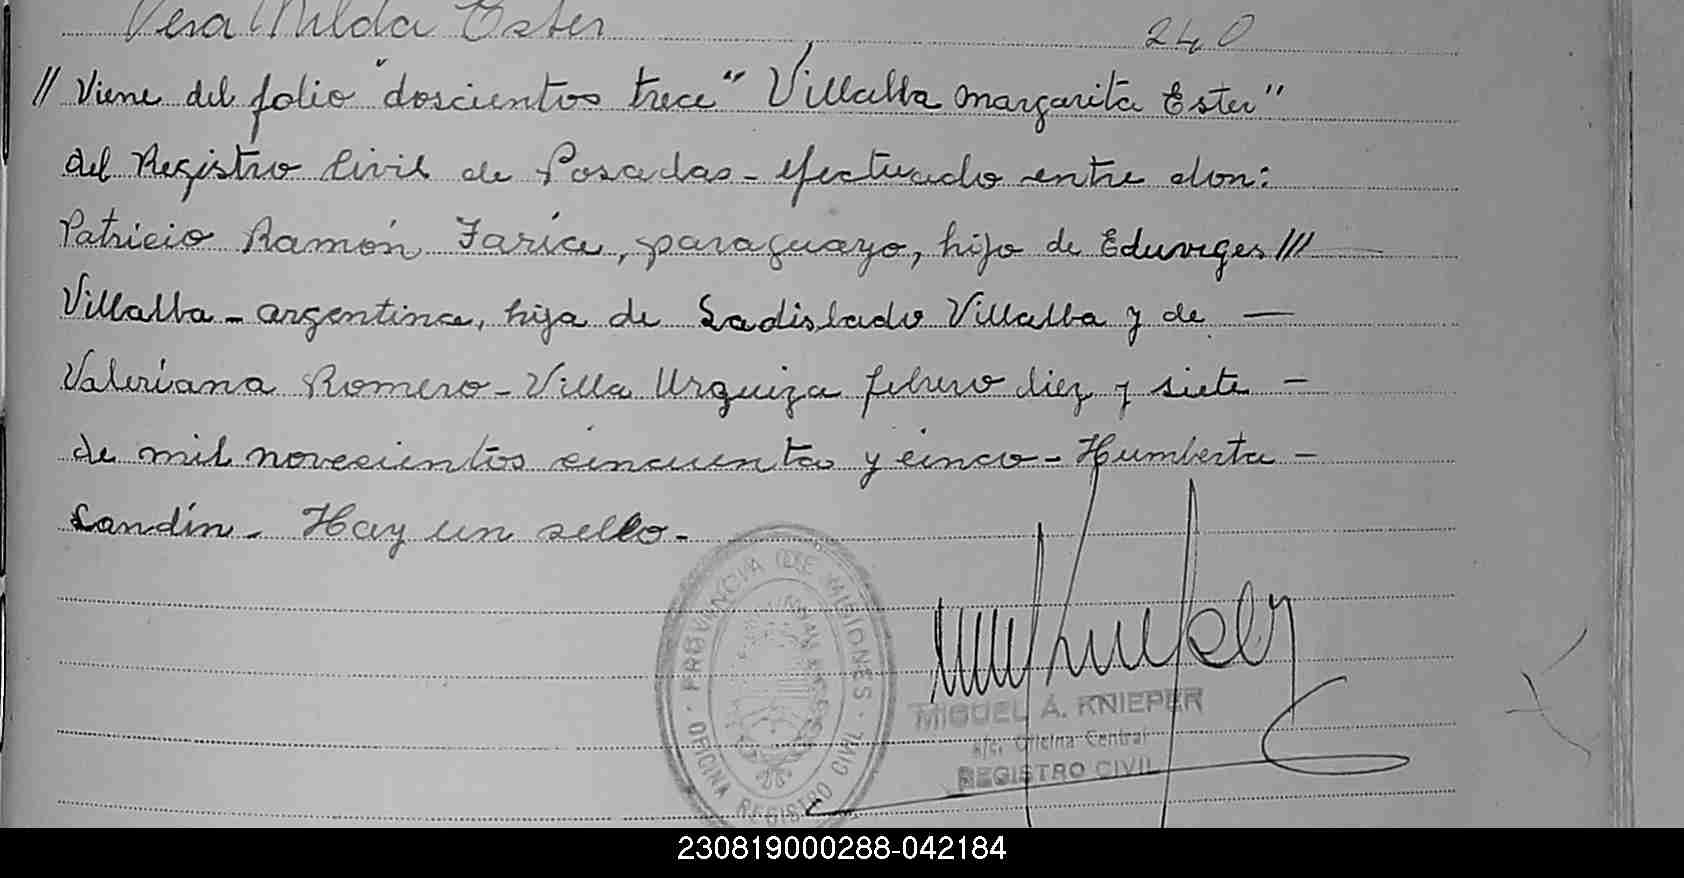 Vera Nilda Ester 240
// Viene del folio "doscientos trece" Villalba Margarita Ester"
del Registro Civil de Posadas - efectuado entre don:
Patricio Ramón Faría, paraguayo, hijo de Eduviges ///
Villalba - argentina, hija de Ladislado Villalba y de —
Valeriana Romero - Villa Urquiza febrero diez y siete -
de mil novecientos cincuenta y cinco - Humberta -
Landín - Hay un sello -
PROVINCIA DE MISIONES
OFICINA REGISTRO CIVIL
MIGUEL A. KNIEPER
a/c. Oficina Central
REGISTRO CIVIL
230819000288-042184